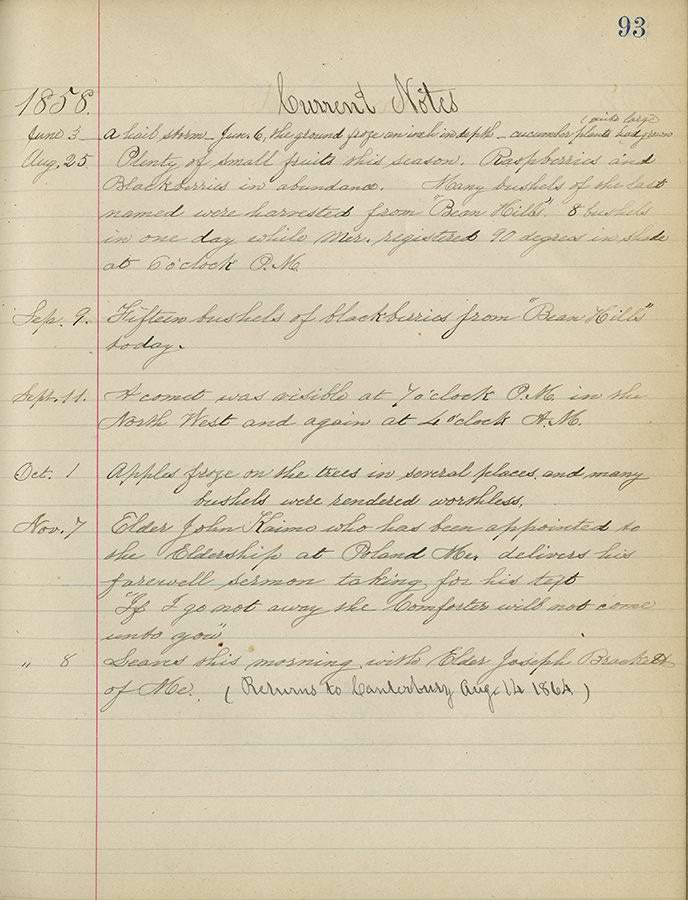 93
1858. Current Notes
(quite large
June 3 A hail storm - Jun. 6, the ground froze an inch in depth - cucumber plants had grown
Aug. 25. Plenty of small fruits this season. Raspberries and
Blackberries in abundance. Many bushels of the last
named were harvested from "Bean Hills". 8 bushels
in one day while Mer. registered 90 degrees in shade
at 6 o'clock P.M.
Sep. 9. Fifteen bushels of blackberries from "Bean Hills"
today.
Sept. 11. A comet was visible at 7 o'clock P.M. in the
North West and again at 4 o'clock A.M.
Oct. 1 Apples froze on the trees in several places, and many
bushels were rendered worthless.
Nov. 7 Elder John Kaime who has been appointed to
the Eldership at Poland Me. delivers his
farewell sermon taking for his text
"If I go not away the Comforter will not come
unto you"
" 8 Leaves this morning with Elder Joseph Brackett
of Me. (Returns to Canterbury Aug. 14 1864)